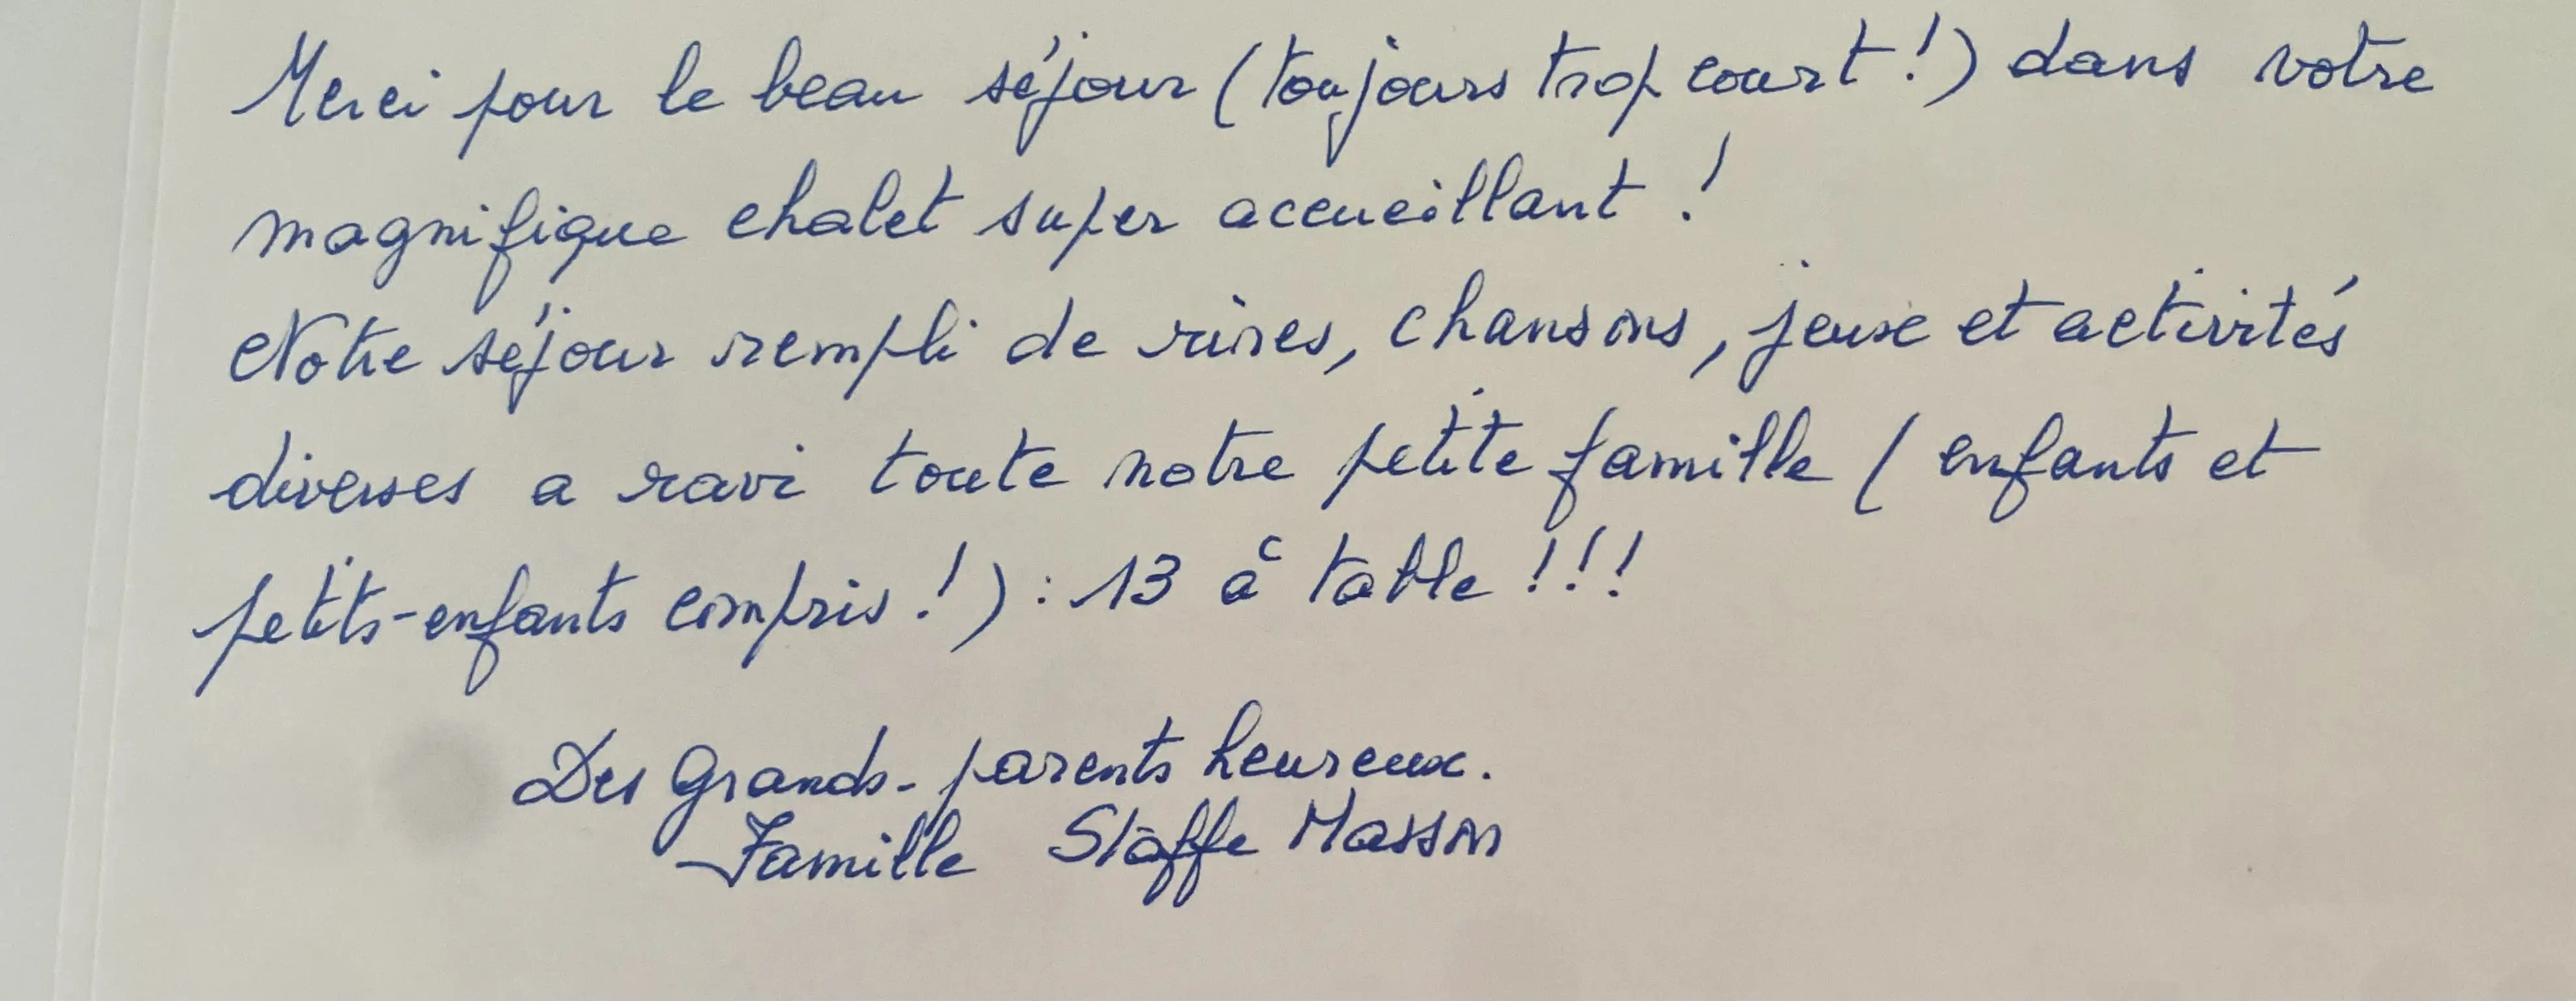 Merci pour le beau séjour (toujours trop court !) dans votre
magnifique chalet super accueillant !
Notre séjour rempli de rires, chansons, jeux et activités
diverses a ravi toute notre petite famille ( enfants et
petits-enfants compris ! ) : 13 à table !!!
Des Grands-parents heureux.
Famille Staffe Masson